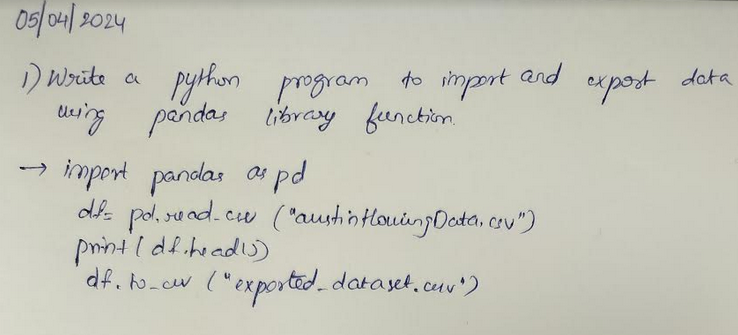 05/04/2024
1) Write a python program to import and export data
using pandas library function.
→ import pandas as pd
df= pd.read_csv ("austinHousingData.csv")
print(df.head())
df.to_csv ("exported_dataset.csv")